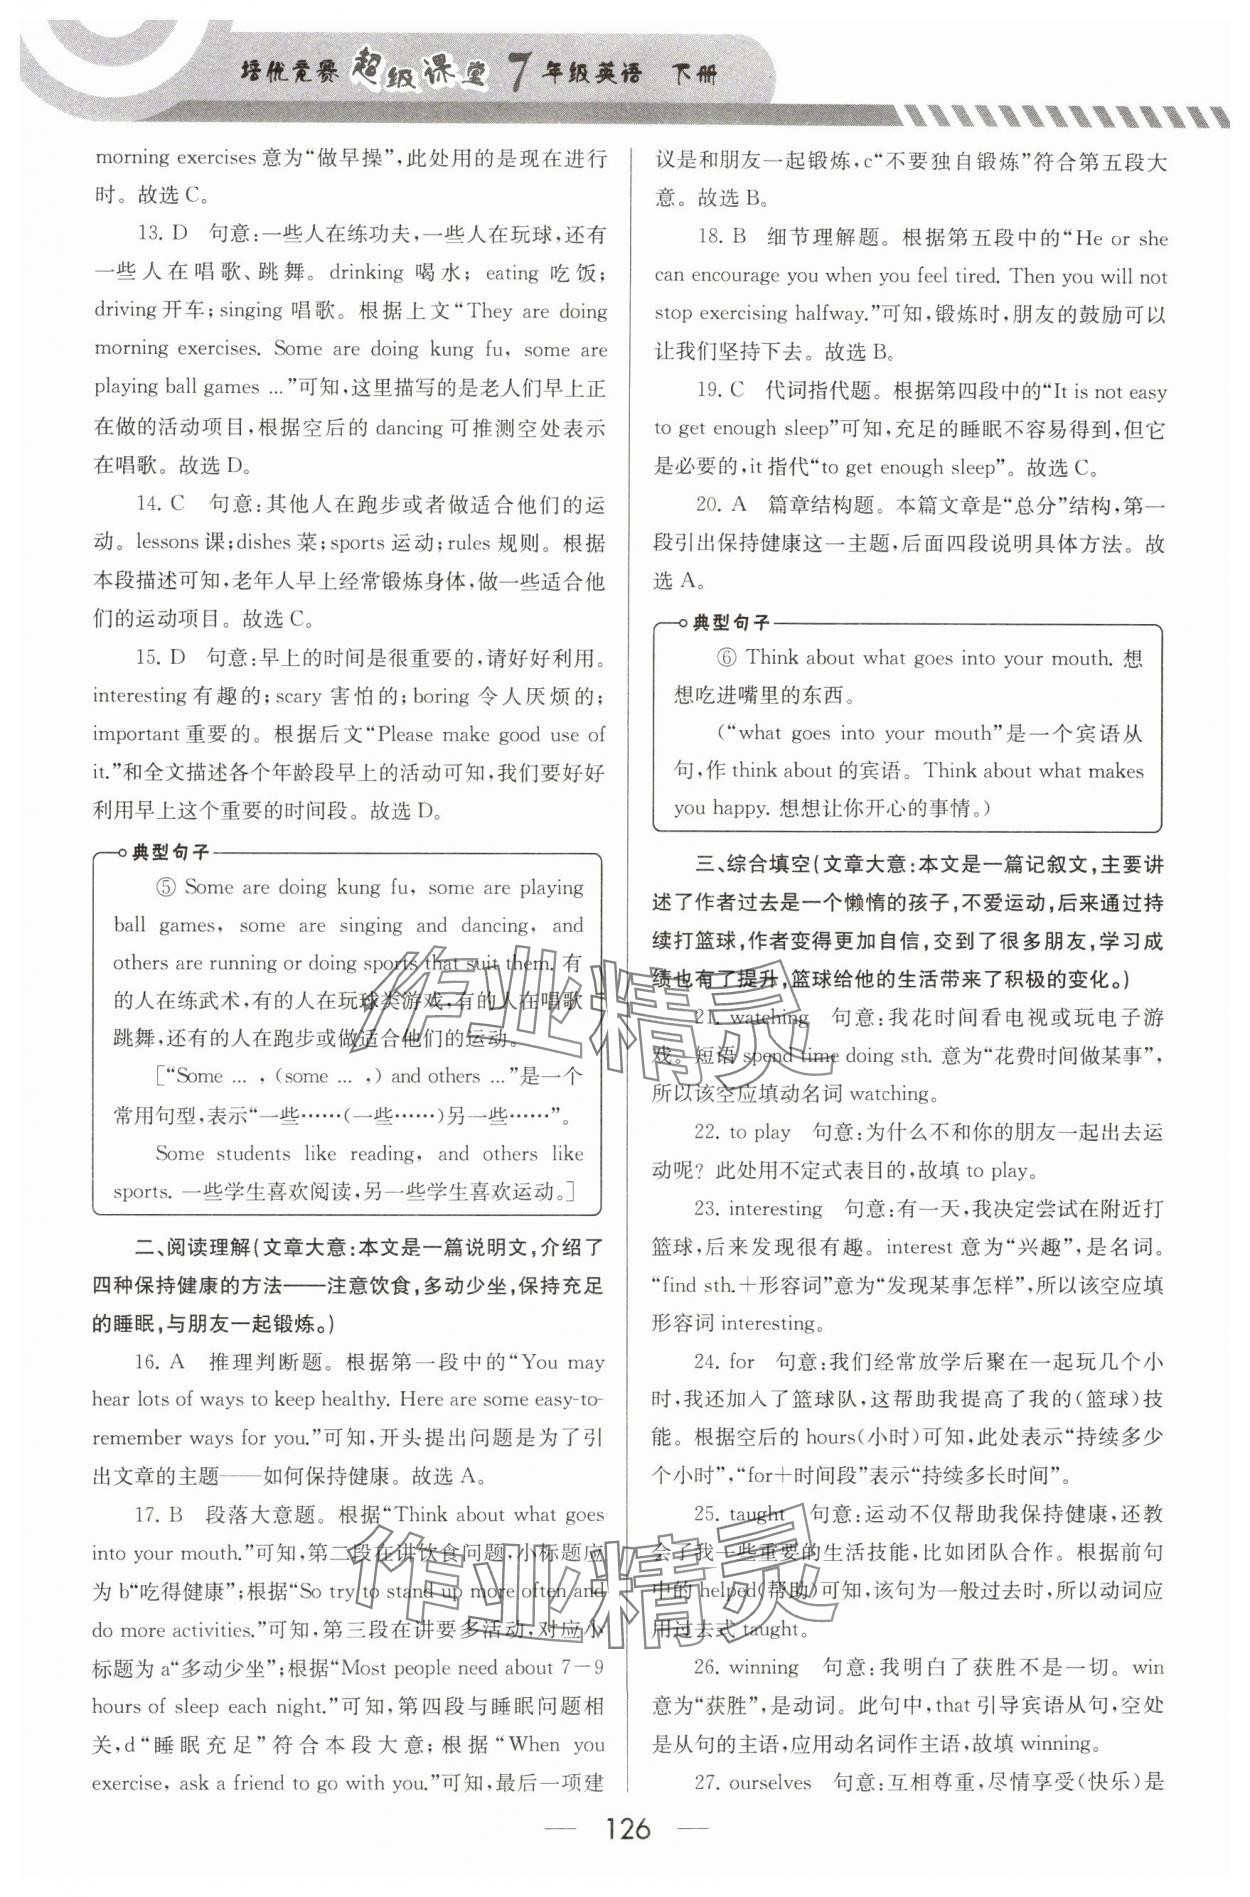 培优竞赛 超级课堂 7年级英语 下册
morning exercises 意为“做早操”,此处用的是现在进行
时。故选 C。
13. D 句意:一些人在练功夫,一些人在玩球,还有
一些人在唱歌、跳舞。drinking 喝水; eating 吃饭;
driving 开车; singing 唱歌。根据上文“They are doing
morning exercises. Some are doing kung fu, some are
playing ball games ...”可知,这里描写的是老人们早上正
在做的活动项目,根据空后的 dancing 可推测空处表示
在唱歌。故选 D。
14. C 句意:其他人在跑步或者做适合他们的运
动。lessons 课;dishes 菜;sports 运动;rules 规则。根据
本段描述可知,老年人早上经常锻炼身体,做一些适合他
们的运动项目。故选 C。
15. D 句意:早上的时间是很重要的,请好好利用。
interesting 有趣的; scary 害怕的; boring 令人厌烦的;
important 重要的。根据后文“Please make good use of
it.”和全文描述各个年龄段早上的活动可知,我们要好好
利用早上这个重要的时间段。故选 D。
典型句子
⑤ Some are doing kung fu, some are playing
ball games, some are singing and dancing, and
others are running or doing sports that suit them. 有
的人在练武术,有的人在玩球类游戏,有的人在唱歌
跳舞,还有的人在跑步或做适合他们的运动。
[“Some ... , (some ... ,) and others ...”是一个
常用句型,表示“一些……(一些……)另一些……”。
Some students like reading, and others like
sports. 一些学生喜欢阅读,另一些学生喜欢运动。]
二、阅读理解(文章大意:本文是一篇说明文,介绍了
四种保持健康的方法——注意饮食,多动少坐,保持充足
的睡眠,与朋友一起锻炼。)
16. A 推理判断题。根据第一段中的“You may
hear lots of ways to keep healthy. Here are some easy-to-
remember ways for you.”可知,开头提出问题是为了引
出文章的主题——如何保持健康。故选 A。
17. B 段落大意题。根据“Think about what goes
into your mouth.”可知,第二段在讲饮食问题,小标题应
为 b“吃得健康”;根据“So try to stand up more often and
do more activities.”可知,第三段在讲要多活动,对应小
标题为 a“多动少坐”;根据“Most people need about 7-9
hours of sleep each night.”可知,第四段与睡眠问题相
关,d“睡眠充足”符合本段大意;根据“When you
exercise, ask a friend to go with you.”可知,最后一项建
议是和朋友一起锻炼,c“不要独自锻炼”符合第五段大
意。故选 B。
18. B 细节理解题。根据第五段中的“He or she
can encourage you when you feel tired. Then you will not
stop exercising halfway.”可知,锻炼时,朋友的鼓励可以
让我们坚持下去。故选 B。
19. C 代词指代题。根据第四段中的“It is not easy
to get enough sleep”可知,充足的睡眠不容易得到,但它
是必要的,it 指代“to get enough sleep”。故选 C。
20. A 篇章结构题。本篇文章是“总分”结构,第一
段引出保持健康这一主题,后面四段说明具体方法。故
选 A。
典型句子
⑥ Think about what goes into your mouth. 想
想吃进嘴里的东西。
(“what goes into your mouth”是一个宾语从
句,作 think about 的宾语。Think about what makes
you happy. 想想让你开心的事情。)
三、综合填空(文章大意:本文是一篇记叙文,主要讲
述了作者过去是一个懒惰的孩子,不爱运动,后来通过持
续打篮球,作者变得更加自信,交到了很多朋友,学习成
绩也有了提升,篮球给他的生活带来了积极的变化。)
21. watching 句意:我花时间看电视或玩电子游
戏。短语 spend time doing sth. 意为“花费时间做某事”,
所以该空应填动名词 watching.
22. to play 句意:为什么不和你的朋友一起出去运
动呢? 此处用不定式表目的,故填 to play。
23. interesting 句意:有一天,我决定尝试在附近打
篮球,后来发现很有趣。interest 意为“兴趣”,是名词。
“find sth.+形容词”意为“发现某事怎样”,所以该空应填
形容词 interesting。
24. for 句意:我们经常放学后聚在一起玩几个小
时,我还加入了篮球队,这帮助我提高了我的(篮球)技
能。根据空后的 hours(小时)可知,此处表示“持续多少
个小时”,“for+时间段”表示“持续多长时间”。
25. taught 句意:运动不仅帮助我保持健康,还教
会了我一些重要的生活技能,比如团队合作。根据前句
中的 helped(帮助)可知,该句为一般过去时,所以动词应
用过去式 taught。
26. winning 句意:我明白了获胜不是一切。win
意为“获胜”,是动词。此句中,that 引导宾语从句,空处
是从句的主语,应用动名词作主语,故填 winning。
27. ourselves 句意:互相尊重,尽情享受(快乐)是
作业精灵
作业精灵
— 126 —